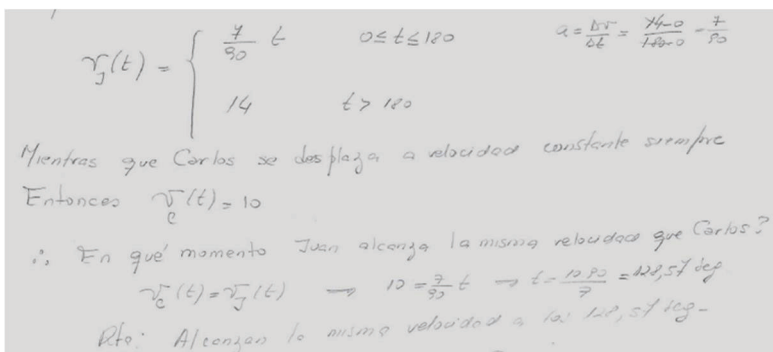 v_J(t) = { 7/90 t    0 ≤ t ≤ 180    a = Δv/Δt = 14-0/180-0 = 7/90
14    t > 180
Mientras que Carlos se desplaza a velocidad constante siempre
Entonces v_c(t) = 10
∴ En qué momento Juan alcanza la misma velocidad que Carlos?
v_c(t) = v_J(t) → 10 = 7/90 t → t = 10.90/7 = 128,57 seg
Rta: Alcanzan la misma velocidad a los 128,57 seg.